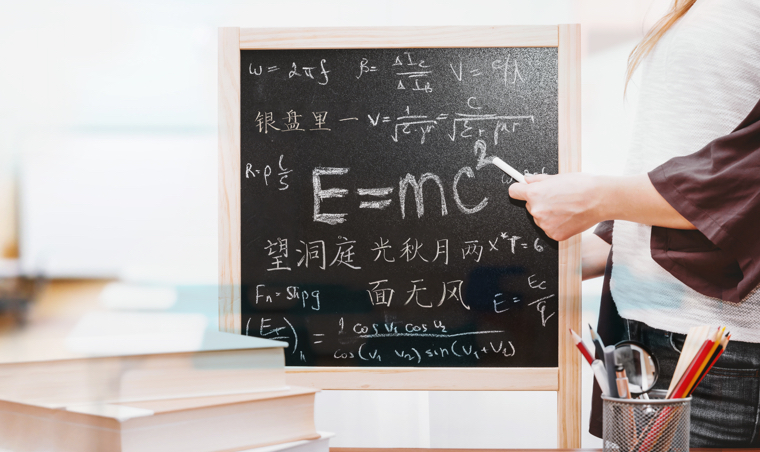 ω = 2πf β = ΔI_c / ΔI_B V = c/λ
银盘里一 V = 1/√(ε·μr) = c/√(εr μr)
R = ρ l/S
E=mc²
望洞庭 光秋月两 x*T = 6
Fn = Shpg 面无风 E = Ec/q
= 1 cos v₁ cos v₂ / cos(v₁ v₂) sin(v₁+v₂)